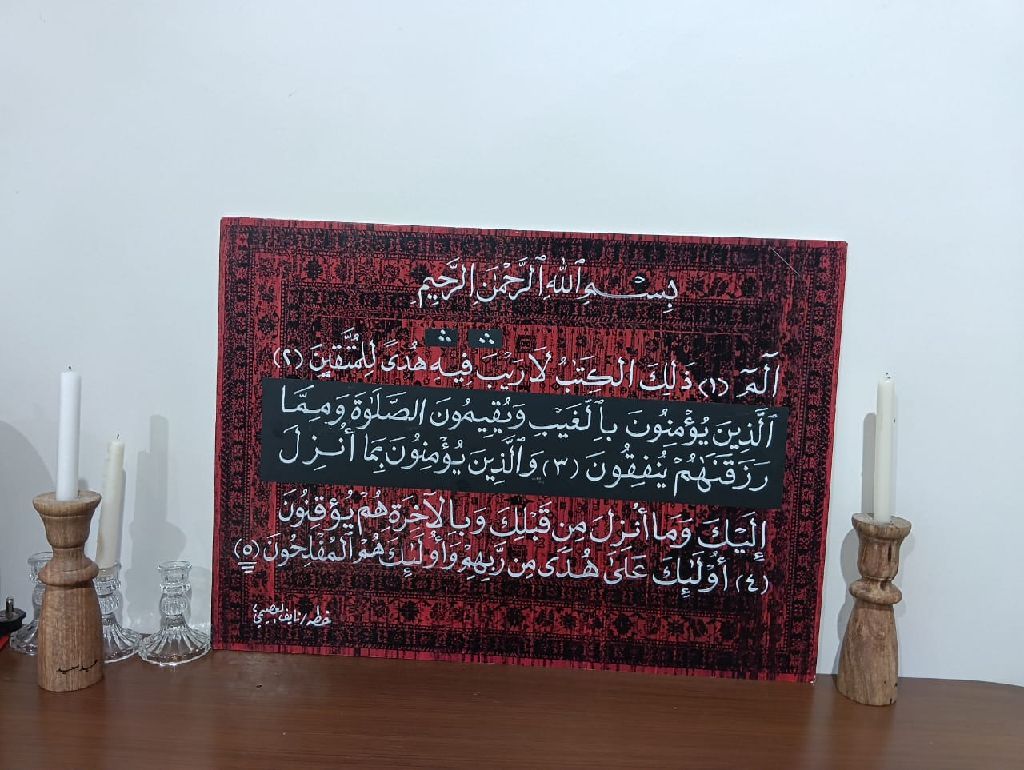 بِسْمِ ٱللهِ ٱلرَّحْمٰنِ الرَّحِيْمِ
الٓمٓ (١) ذَلِكَ الكِتَبُ لَا رَيْبَ فِيهِ هُدًى لِلمُتَّقِينَ (٢)
ٱلَّذِينَ يُؤْمِنُونَ بِٱلغَيْبِ وَيُقِيمُونَ الصَّلَوٰةَ وَمِمَّا
رَزَقْنَهُمْ يُنفِقُونَ (٣) وَٱلَّذِينَ يُؤْمِنُونَ بِمَا أُنزِلَ
إِلَيْكَ وَمَا أُنزِلَ مِن قَبْلِكَ وَبِالآخِرَةِ هُمْ يُوقِنُونَ
(٤) أُوْلَئِكَ عَلَىٰ هُدًى مِن رَّبِهِمْ وَأُوْلَئِكَ هُمُ المُفْلِحُونَ (٥)
خطه/نايف